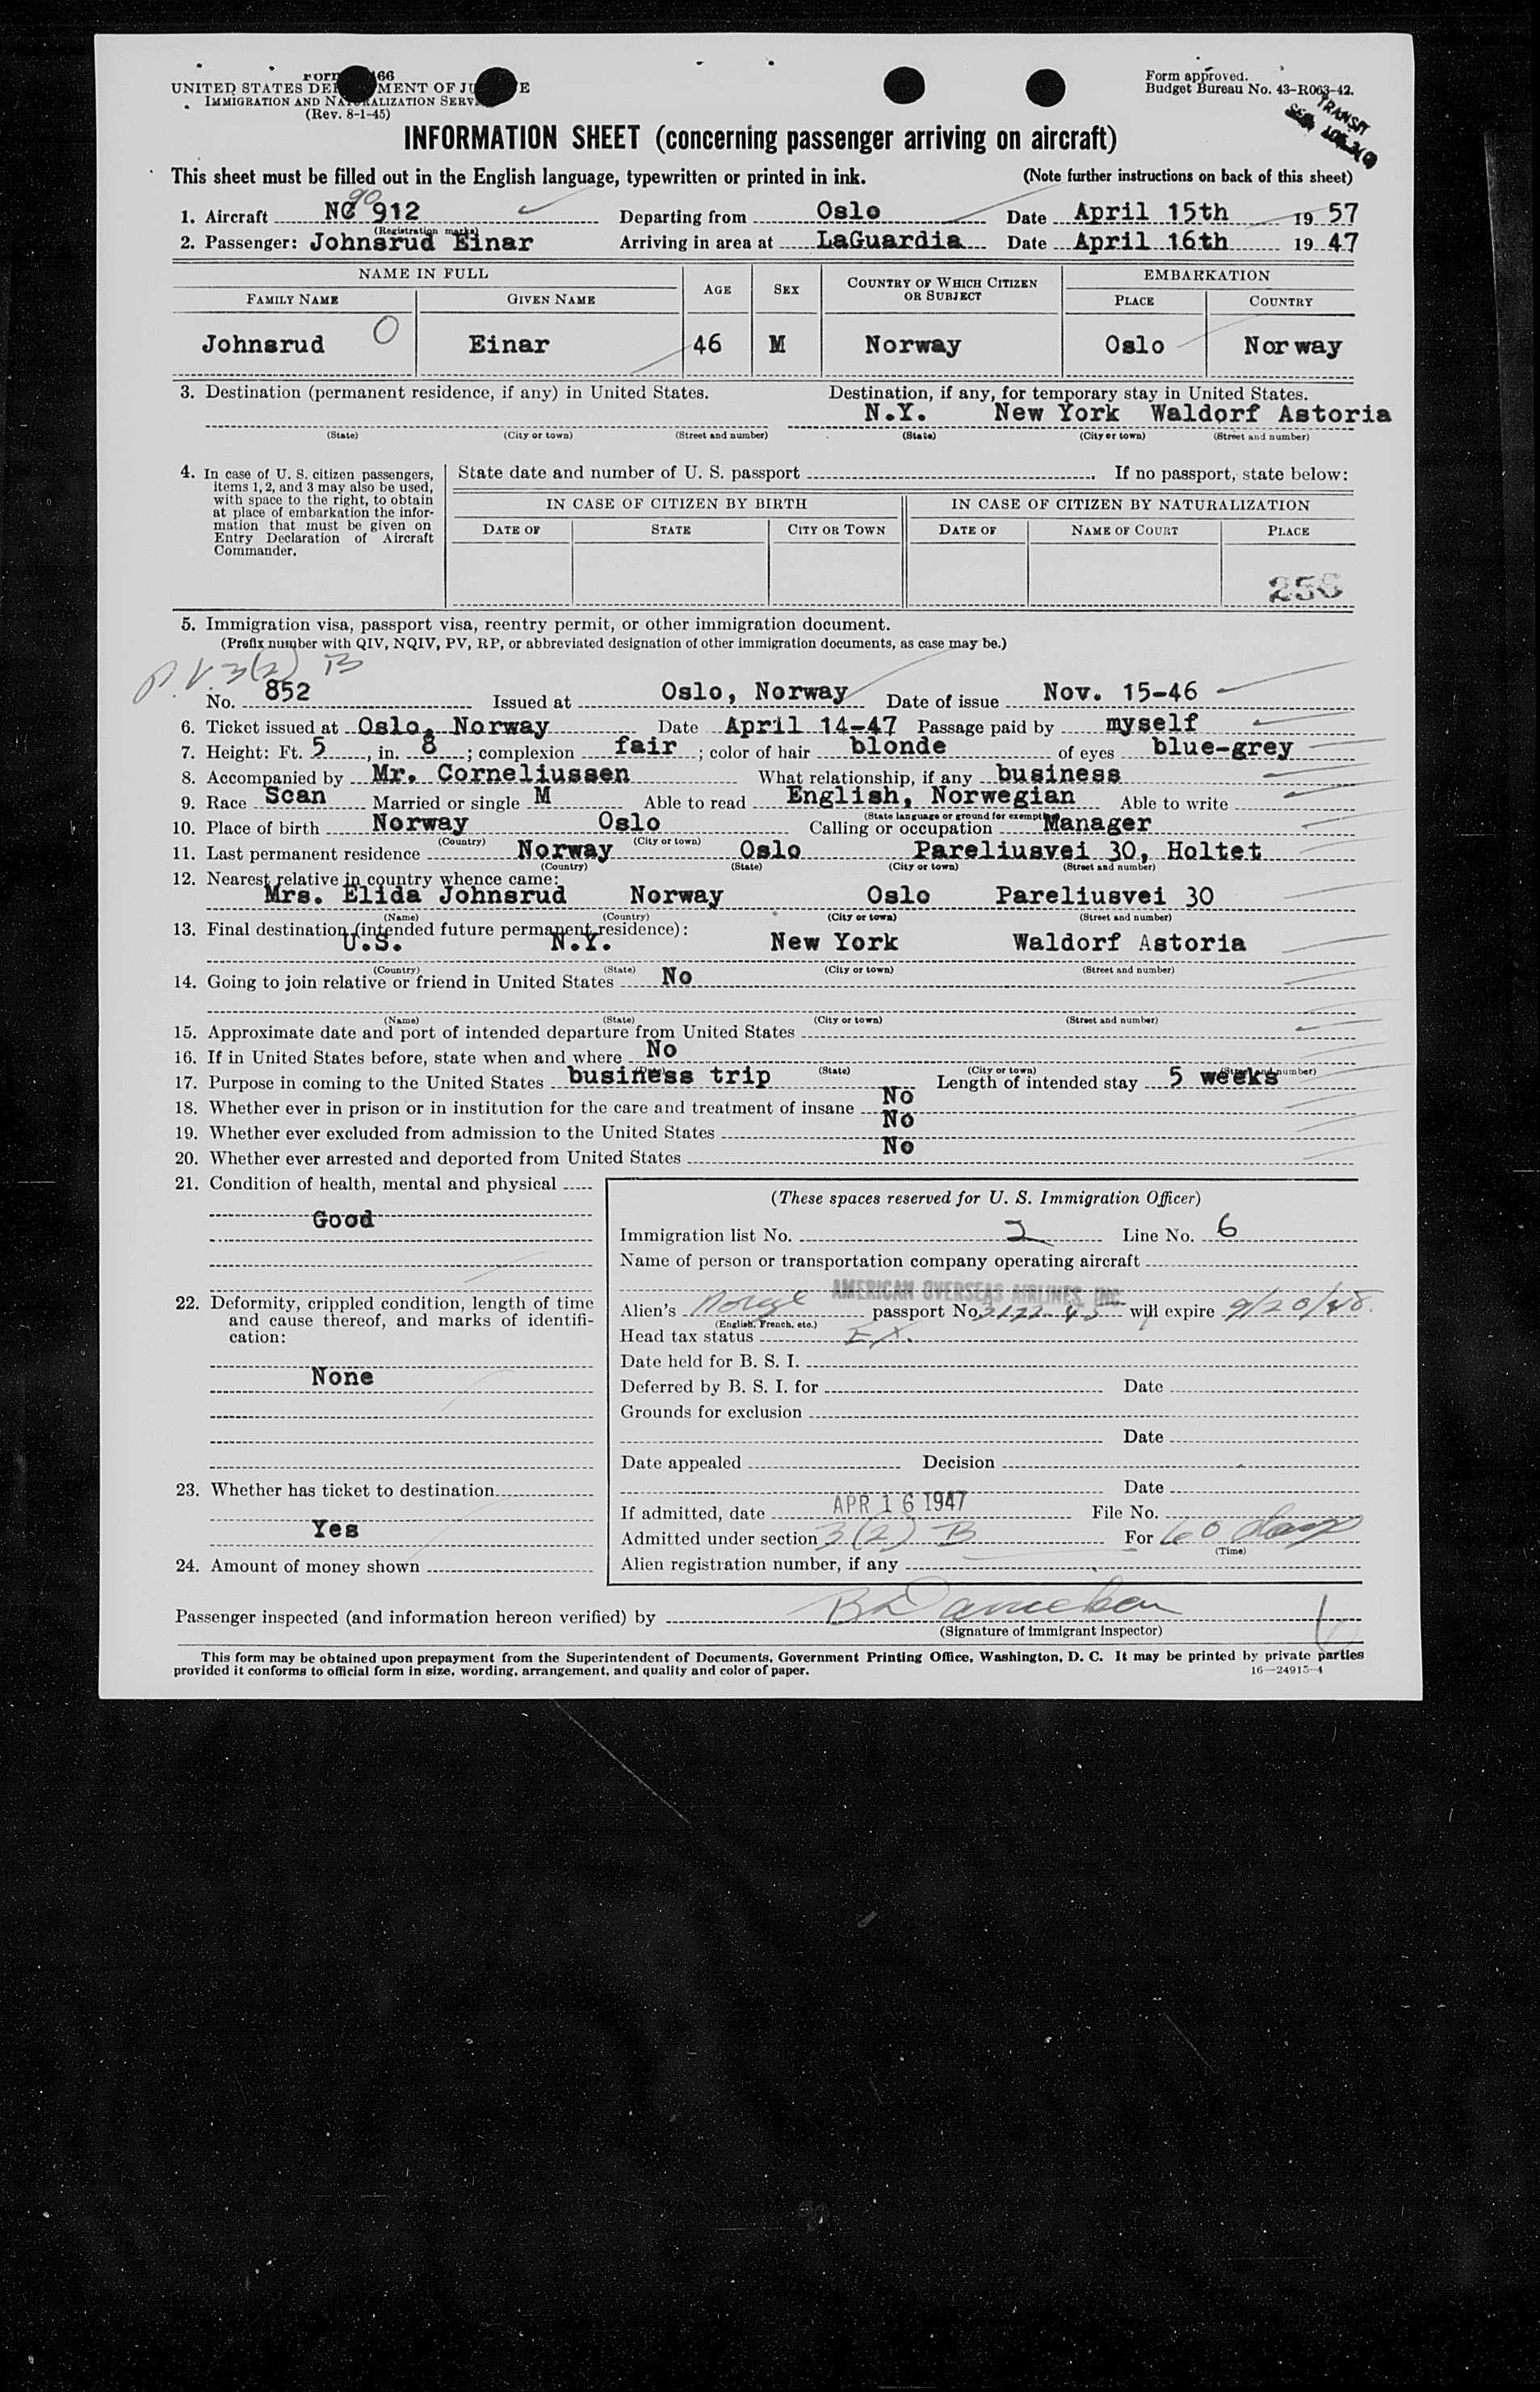 66
UNITED STATES DE MENT OF JU E
IMMIGRATION AND NATURALIZATION SERV
(Rev. 8-1-45)
Form approved.
Budget Bureau No. 43-R063-42.
TRANSIT
INFORMATION SHEET (concerning passenger arriving on aircraft)
This sheet must be filled out in the English language, typewritten or printed in ink. (Note further instructions on back of this sheet)
90
1. Aircraft NC 912 Departing from Oslo Date April 15th 19 57
(Registration marks)
2. Passenger: Johnsrud Einar Arriving in area at LaGuardia Date April 16th 19 47
NAME IN FULL AGE SEX COUNTRY OF WHICH CITIZEN OR SUBJECT EMBARKATION
FAMILY NAME GIVEN NAME PLACE COUNTRY
Johnsrud O Einar 46 M Norway Oslo Norway
3. Destination (permanent residence, if any) in United States. Destination, if any, for temporary stay in United States.
N.Y. New York Waldorf Astoria
(State) (City or town) (Street and number) (State) (City or town) (Street and number)
4. In case of U. S. citizen passengers,
items 1, 2, and 3 may also be used,
with space to the right, to obtain
at place of embarkation the infor-
mation that must be given on
Entry Declaration of Aircraft
Commander.
State date and number of U. S. passport . If no passport, state below:
IN CASE OF CITIZEN BY BIRTH IN CASE OF CITIZEN BY NATURALIZATION
DATE OF STATE CITY OR TOWN DATE OF NAME OF COURT PLACE
256
5. Immigration visa, passport visa, reentry permit, or other immigration document.
(Prefix number with QIV, NQIV, PV, RP, or abbreviated designation of other immigration documents, as case may be.)
P.V. 3(2) B
No. 852 Issued at Oslo, Norway Date of issue Nov. 15-46
6. Ticket issued at Oslo, Norway Date April 14-47 Passage paid by myself
7. Height: Ft. 5, in. 8; complexion fair; color of hair blonde of eyes blue-grey
8. Accompanied by Mr. Corneliussen What relationship, if any business
9. Race Scan Married or single M Able to read English, Norwegian Able to write
(State language or ground for exempt
10. Place of birth Norway Oslo Calling or occupation Manager
(Country) (City or town)
11. Last permanent residence Norway Oslo Pareliusvei 30, Holtet
(Country) (State) (City or town) (Street and number)
12. Nearest relative in country whence came:
Mrs. Elida Johnsrud Norway Oslo Pareliusvei 30
(Name) (Country) (City or town) (Street and number)
13. Final destination (intended future permanent residence):
U.S. N.Y. New York Waldorf Astoria
(Country) (State) (City or town) (Street and number)
14. Going to join relative or friend in United States No
(Name) (State) (City or town) (Street and number)
15. Approximate date and port of intended departure from United States
16. If in United States before, state when and where No
(State) (City or town) (Street and number)
17. Purpose in coming to the United States business trip Length of intended stay 5 weeks
18. Whether ever in prison or in institution for the care and treatment of insane No
19. Whether ever excluded from admission to the United States No
20. Whether ever arrested and deported from United States No
21. Condition of health, mental and physical
Good
22. Deformity, crippled condition, length of time
and cause thereof, and marks of identifi-
cation:
None
23. Whether has ticket to destination
Yes
24. Amount of money shown
(These spaces reserved for U. S. Immigration Officer)
Immigration list No. 2 Line No. 6
Name of person or transportation company operating aircraft
AMERICAN OVERSEAS AIRLINES, INC.
Alien's passport No. will expire 9/20/48.
(English, French, etc.)
Head tax status Ex.
Date held for B. S. I.
Deferred by B. S. I. for Date
Grounds for exclusion
Date
Date appealed Decision
Date
If admitted, date APR 16 1947 File No.
Admitted under section 3(2) B For 60 days
(Time)
Alien registration number, if any
Passenger inspected (and information hereon verified) by
(Signature of immigrant inspector)
This form may be obtained upon prepayment from the Superintendent of Documents, Government Printing Office, Washington, D. C. It may be printed by private parties
provided it conforms to official form in size, wording, arrangement, and quality and color of paper.
16—24915-4